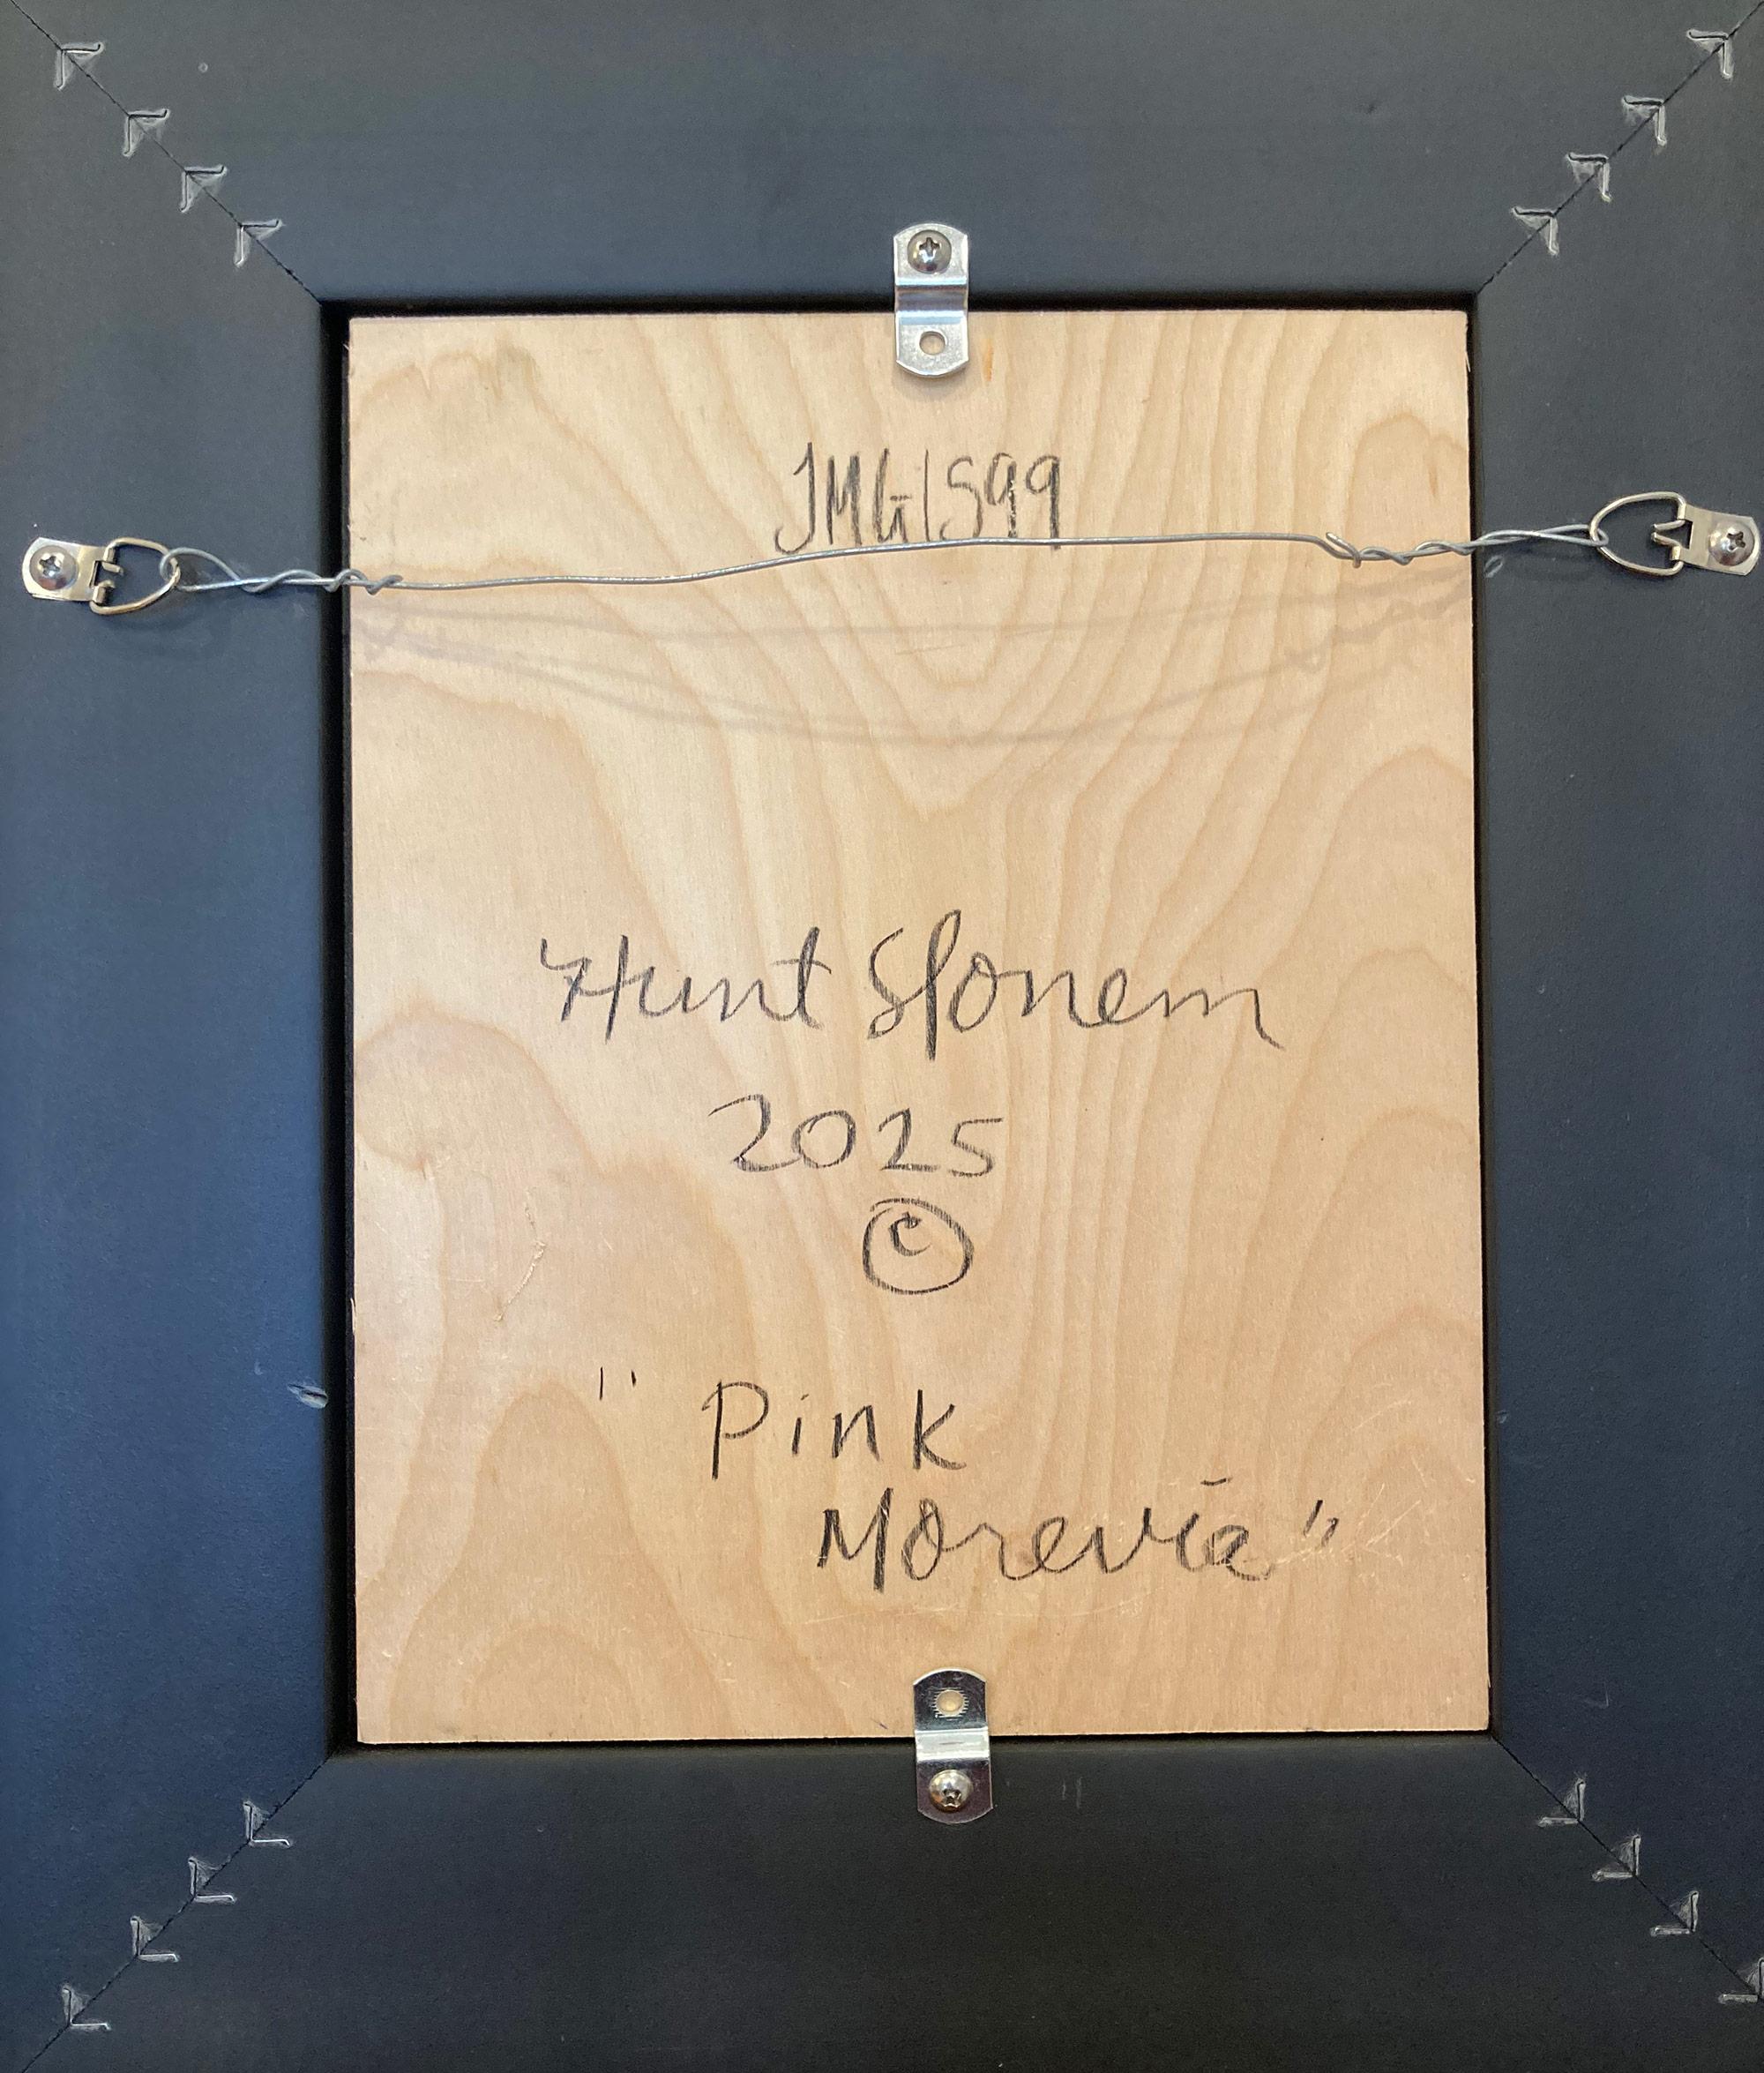 JMG1599
Hunt Slonem
2025
©
"Pink
Morevia"